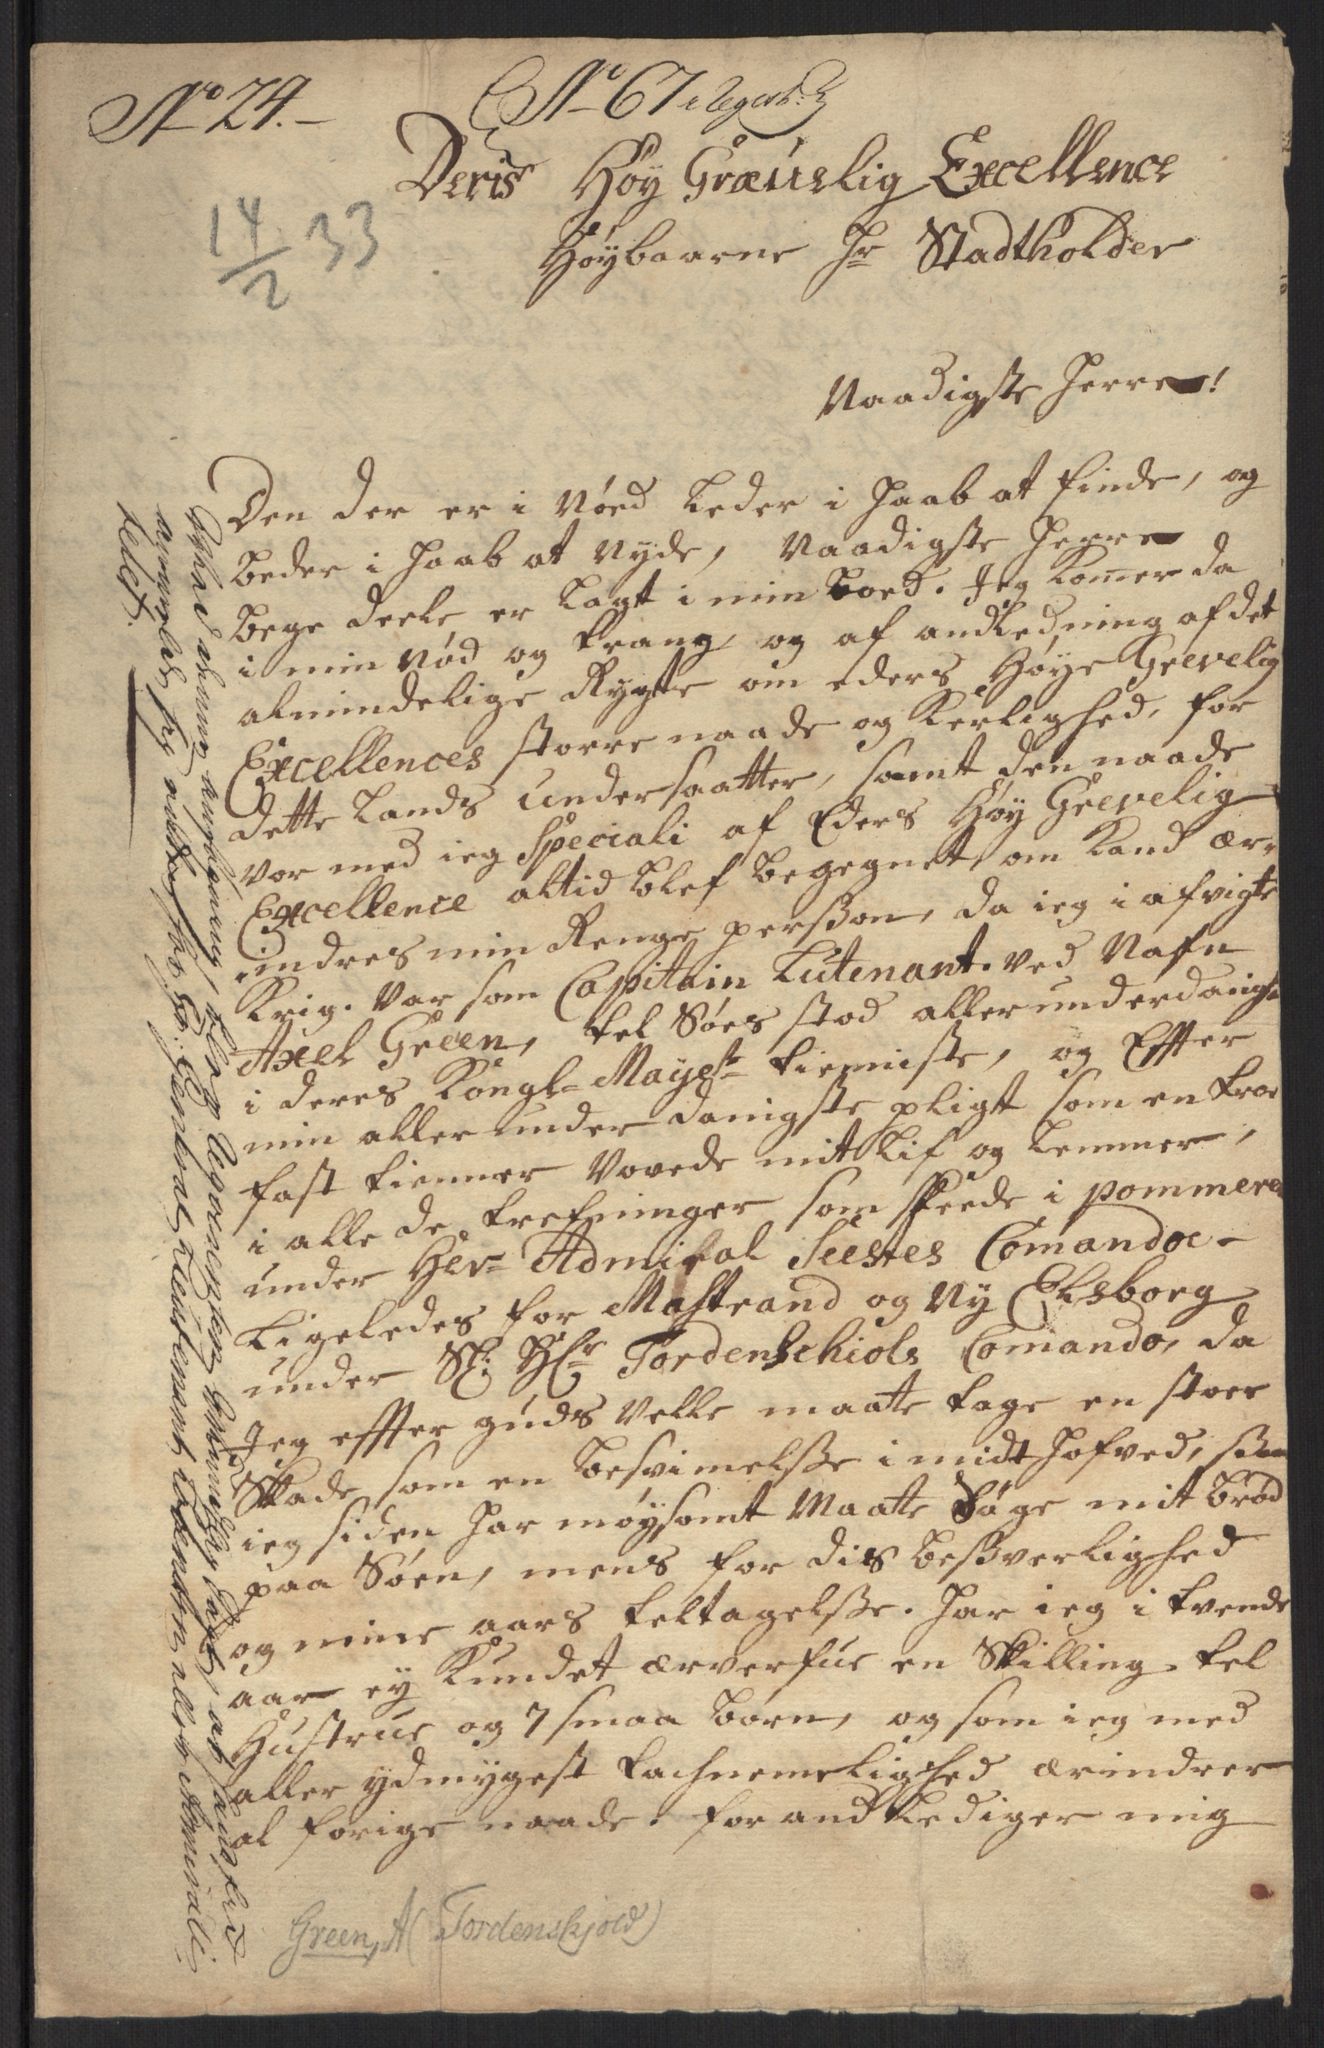 No 24.
No 67
14/2 33
Deris Høy Græuelig Excellence
Høybaarne Hr Stadtholder
Naadigste Herre!
Den der er i Nöed leder i Haab at finde, og
beder i Haab at nyde, Naadigste Herre
bege deele er lagt i min boed. Jeg komer da
i min Nöd og trang, og af andledning af det
almindelige Rygte om eders Høye Grevelig
Excellences storre naade og Kerlighed, for
dette Lands undersaatter, samt den naade
vor med ieg Speciali af Eders Høy Grevelig
Excellence altid blef begegnet, om Kand ær-
indres min Renge perßon, da ieg i afvigte
Krig. Var som Capitain Lutenant. ved Nafn
Axel Green, tel Söes stod allerunderdanigst
i deres Kongl= Mayest tienniste, og Effter
min allerunderdanigste pligt som en troe
fast tienner Vovede mit Lif og Lemmer,
i alle de trefninger som skeede i pommeren
under Her= Admiral Seestes Comandoe-
Ligeledes for Mastrand og Ny Elsborg
under Sl: Hr Tordenschiols Comando, da
Jeg effter guds Velle maatte tage en stoer
Skade som en besvimelße i midt Hofved,
ieg siden Har møysomt Maate søge mit brød
paa Söen, mens for dis beßverlighed
og mine aars teltagelße. Har ieg i tvende
aar ey Kundet ærverfue en Skilling. tel
Hustrue og 7 smaa børn, og som ieg med
aller ydmygest tachnemelighed ærindrer
al forige naade. forandlediger mig
for General Lieutenant
Green, A (Tordenskjold)